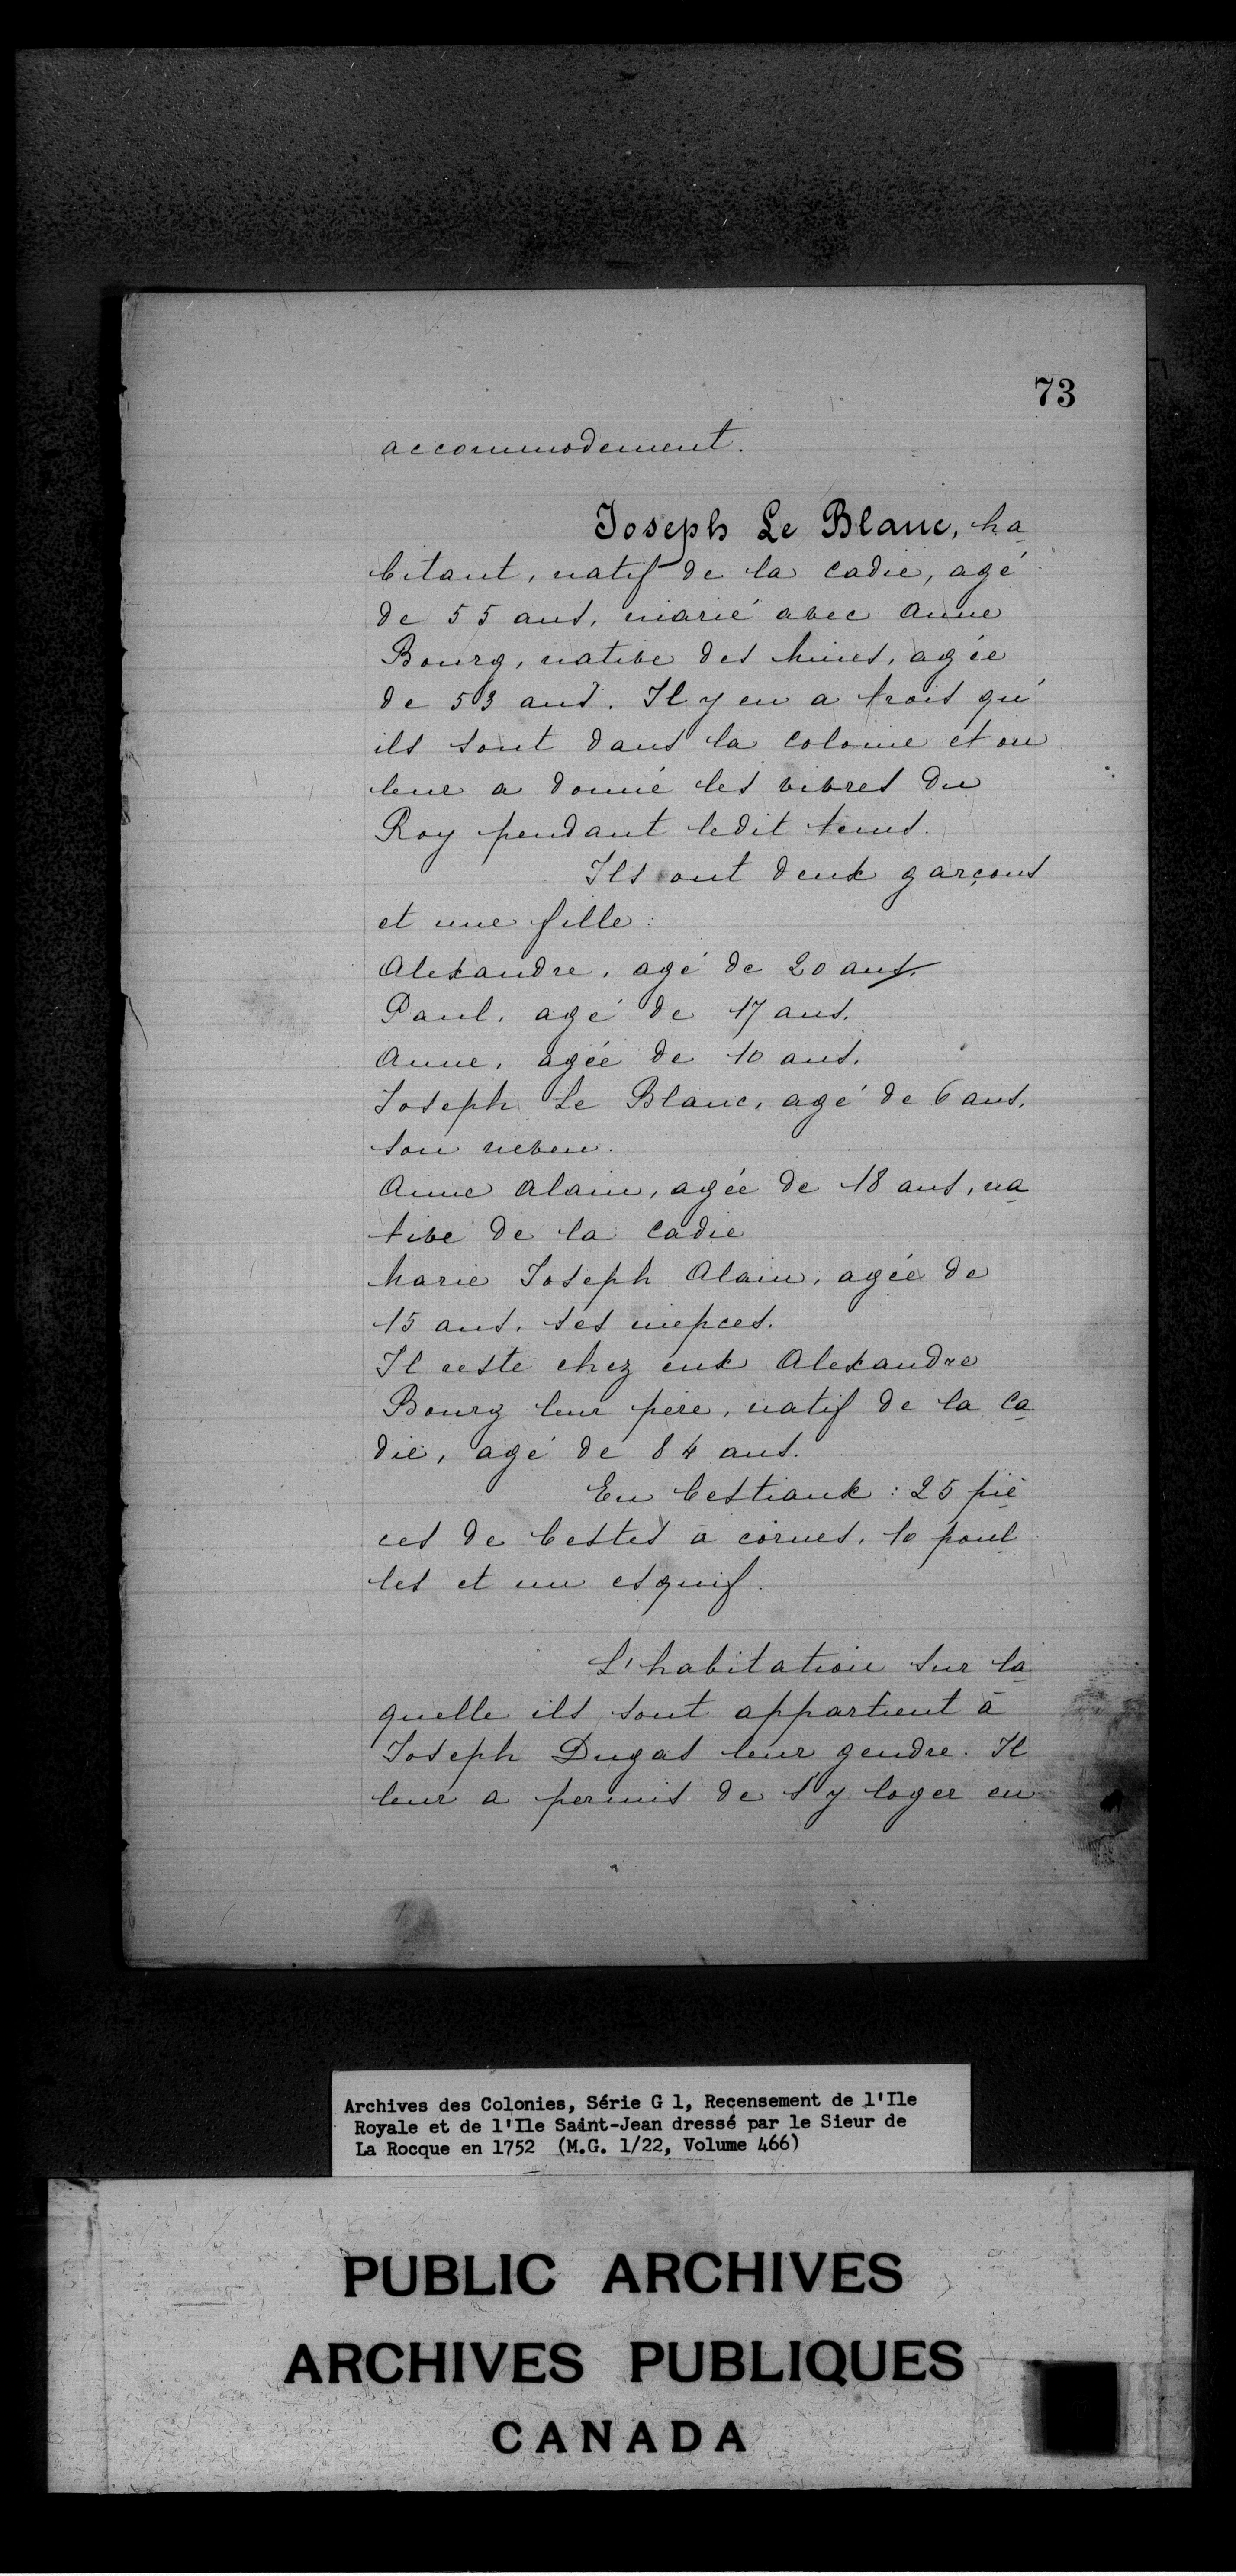 73
accommodement.
Joseph Le Blanc, ha
bitant, natif de la Cadie, agé
de 55 ans, marié avec Anne
Bourg, native des Mines, agée
de 53 ans. Il y en a trois qu'
ils sont dans la colonie et on
leur a donné les vivres du
Roy pendant ledit tems.
Ils ont deux garçons
et une fille:
Alexandre, agé de 20 ans.
Paul, agé de 17 ans.
Anne, agée de 10 ans.
Joseph Le Blanc, agé de 6 ans,
son neveu.
Anne Alain, agée de 18 ans, na
tive de la Cadie
Marie Joseph Alain, agée de
15 ans, ses niepces.
Il reste chez eux Alexandre
Bourg leur père, natif de la Ca
die, agé de 84 ans.
En bestiaux: 25 piè
ces de bestes à cornes, 10 poul
les et un esquif.
L'habitation sur la
quelle ils sont appartient à
Joseph Dugas leur gendre. Il
leur a permis de s'y loger en
Archives des Colonies, Série G 1, Recensement de l'Ile
Royale et de l'Ile Saint-Jean dressé par le Sieur de
La Rocque en 1752 (M.G. 1/22, Volume 466)
PUBLIC ARCHIVES
ARCHIVES PUBLIQUES
CANADA